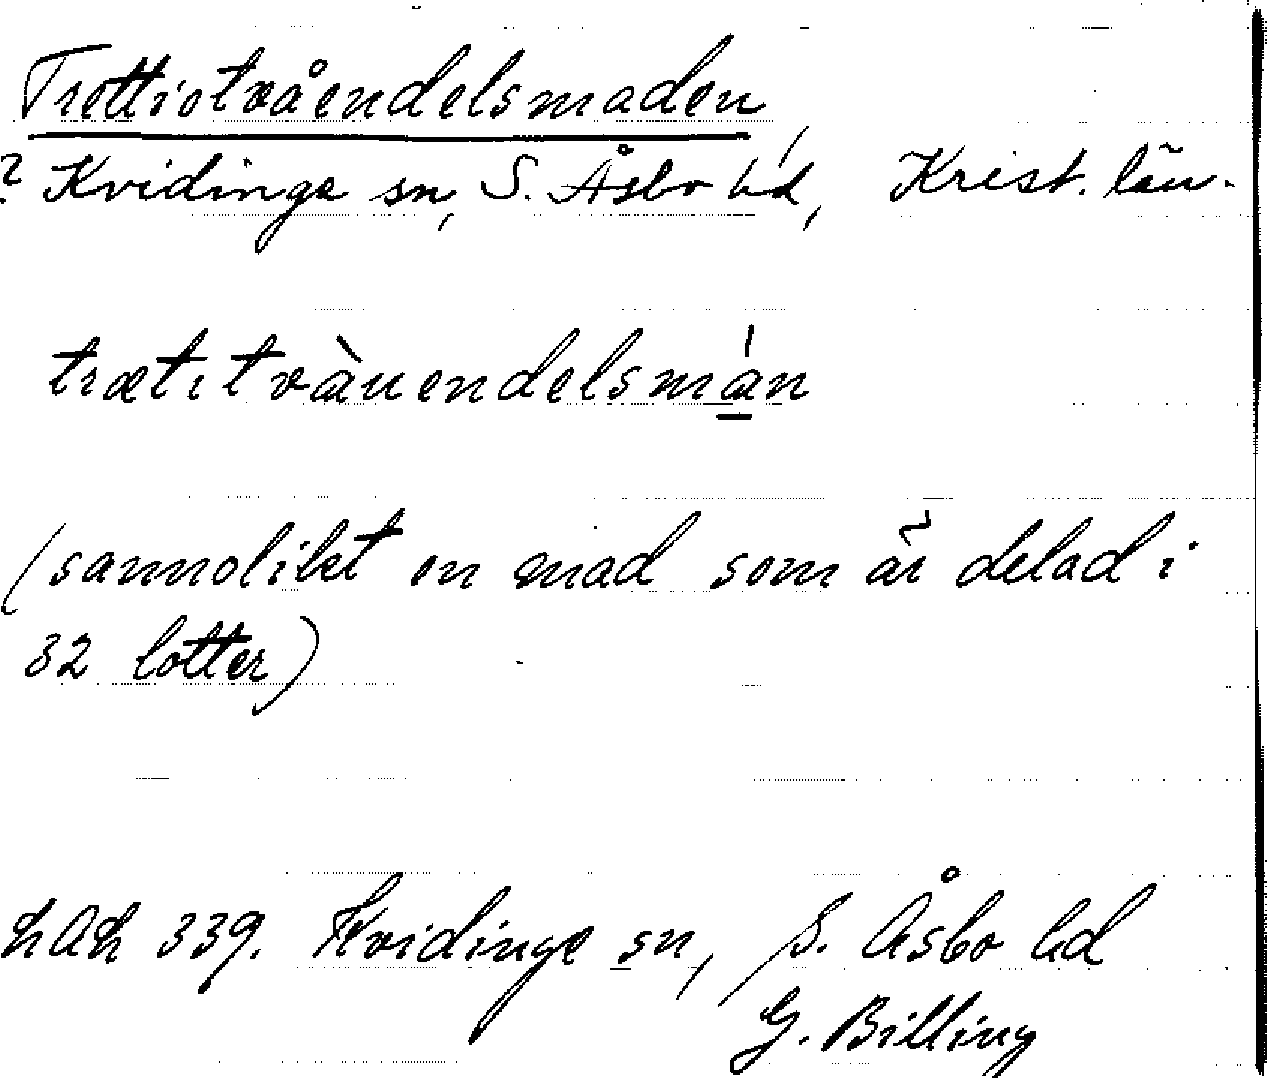 Trettiotvåendelsmaden
? Kvidinge sn, S. Åsbo hd, Krist. län.
trætitvàuendelsmán
(sannolikt en mad som är delad i
32 lotter)
339. Kvidinge sn, S. Åsbo hd
G. Billing